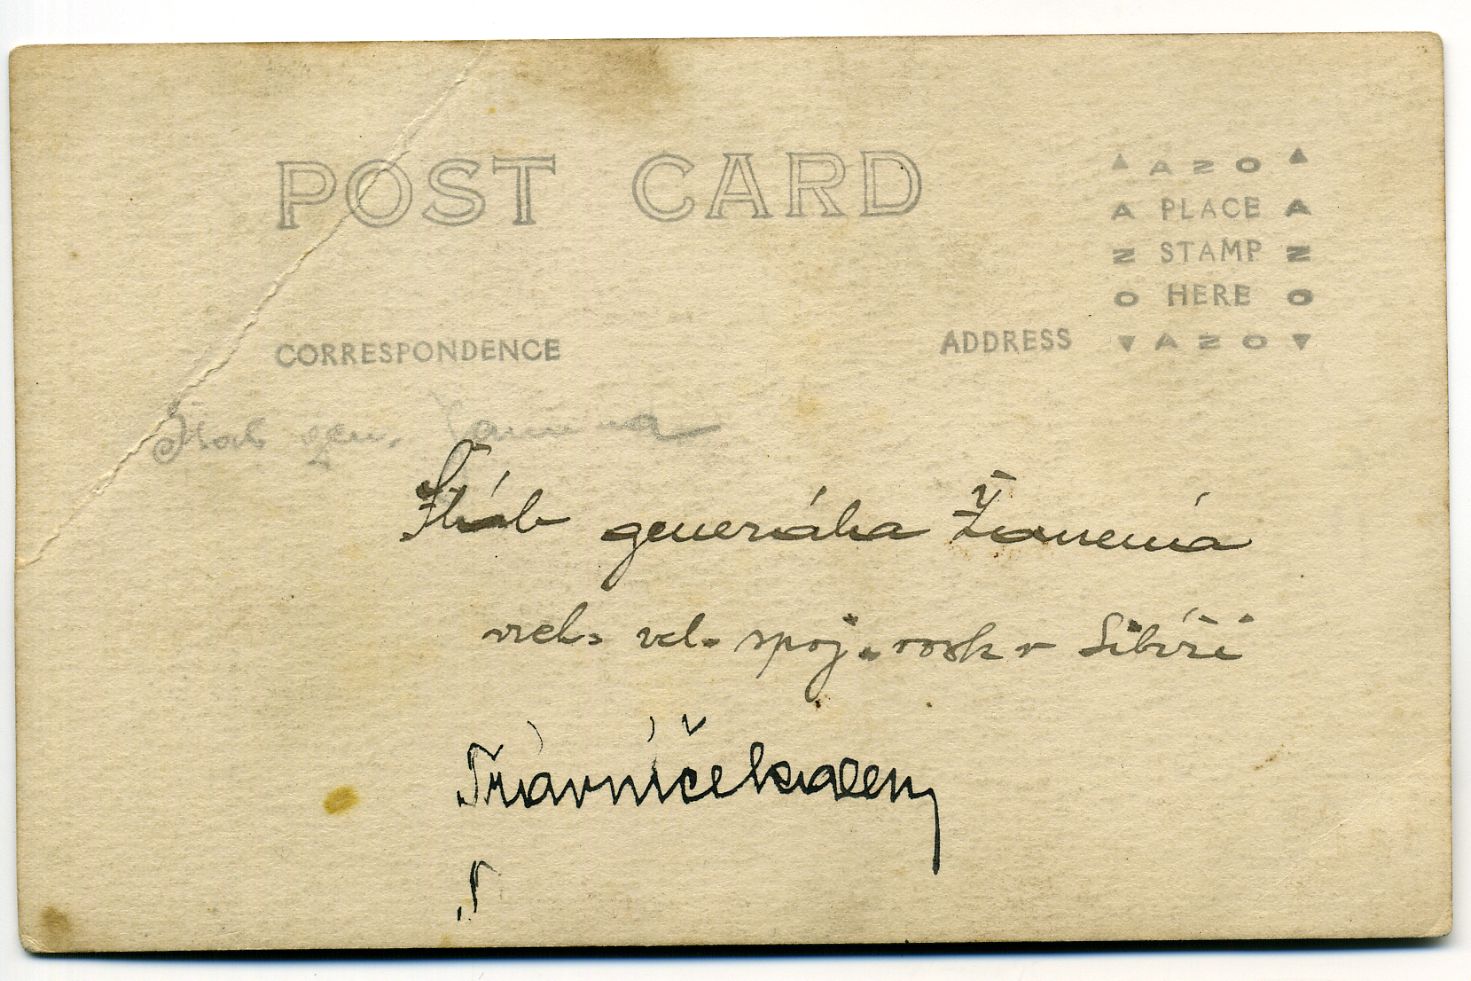 POST CARD
▲ A Z O ▲
A PLACE A
Z STAMP Z
O HERE O
▼ A Z O ▼
CORRESPONDENCE
ADDRESS
Štáb gen. Janina
Štáb generála Žanená
vel. spoj. vojsk v Sibiři
Trávníček